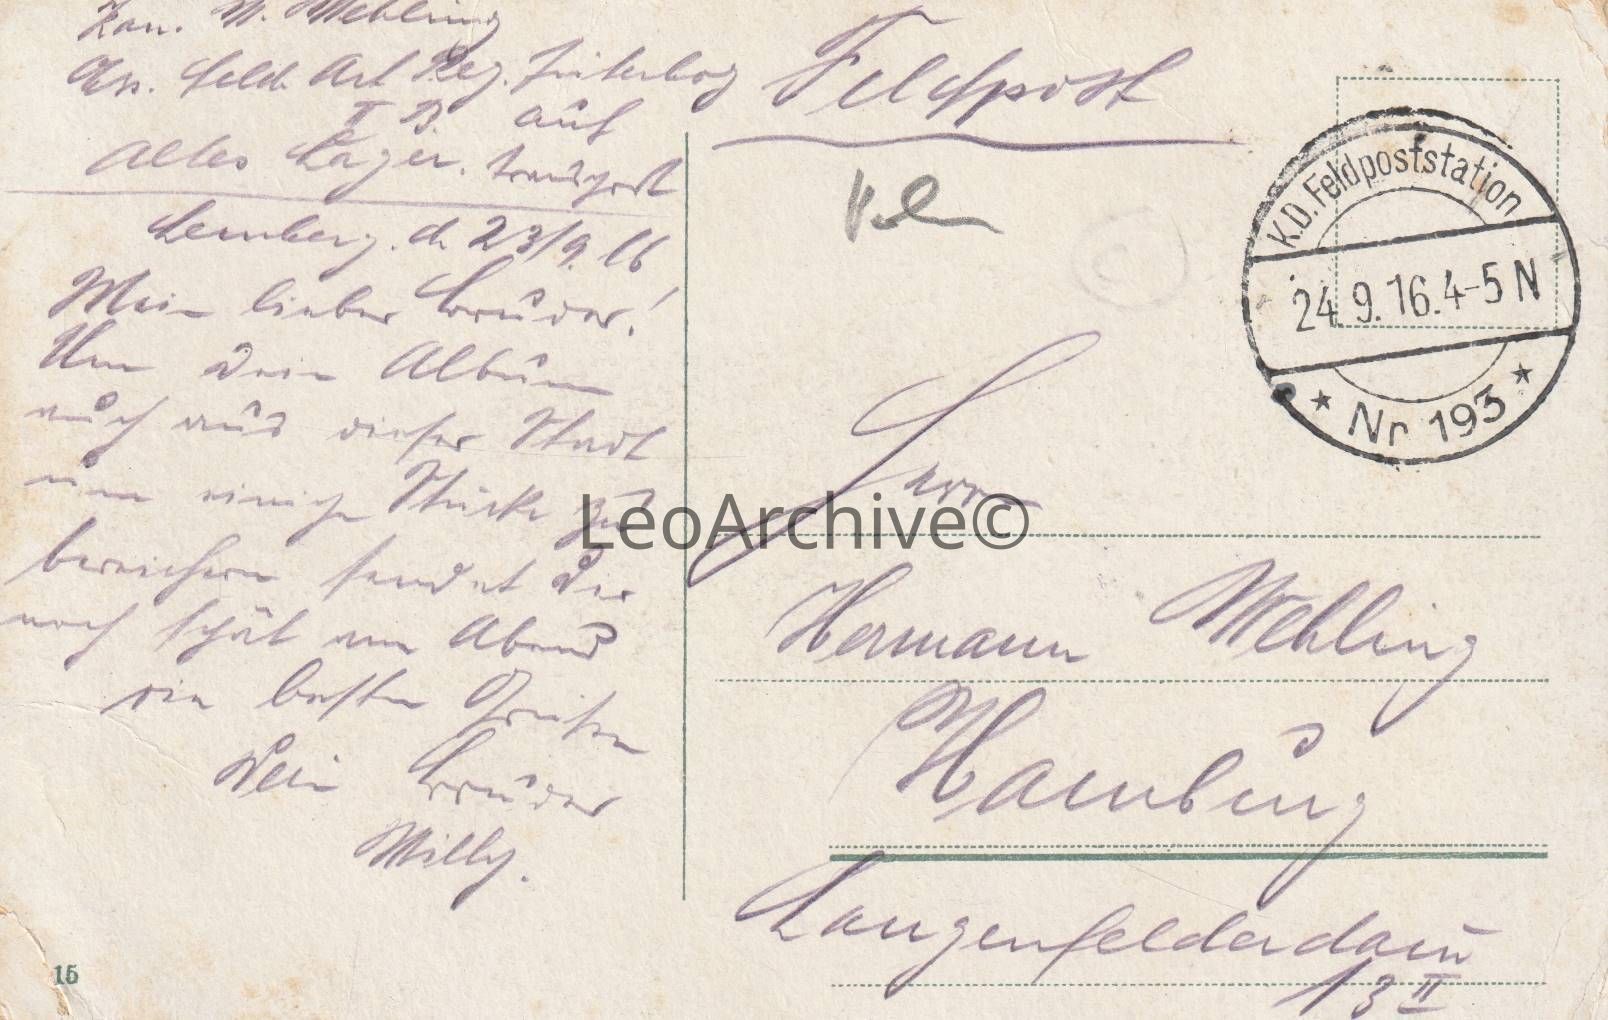 Kan. W. Mehling
Ers. Feld. Art. Reg. Jüterbog
II B. auf
Altes Lager. Transport
Lemberg. d. 23/9. 16
Mein lieber Bruder!
Um Dein Album
auch aus dieser Stadt
um einige Stücke zu
bereichern sendet Dir
noch spät am Abend
die besten Grüße
Dein Bruder
Willy.
15
Feldpost
K.D. Feldpoststation
24.9.16.4-5 N
* Nr 193 *
Herrn
Hermann Mehling
Hamburg
Langenfelderdam
13 II
LeoArchive©